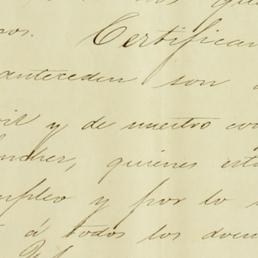 os. Certifican
anteceden son
y de nuestro con
quienes est
mpleo y por lo
á todos los docu